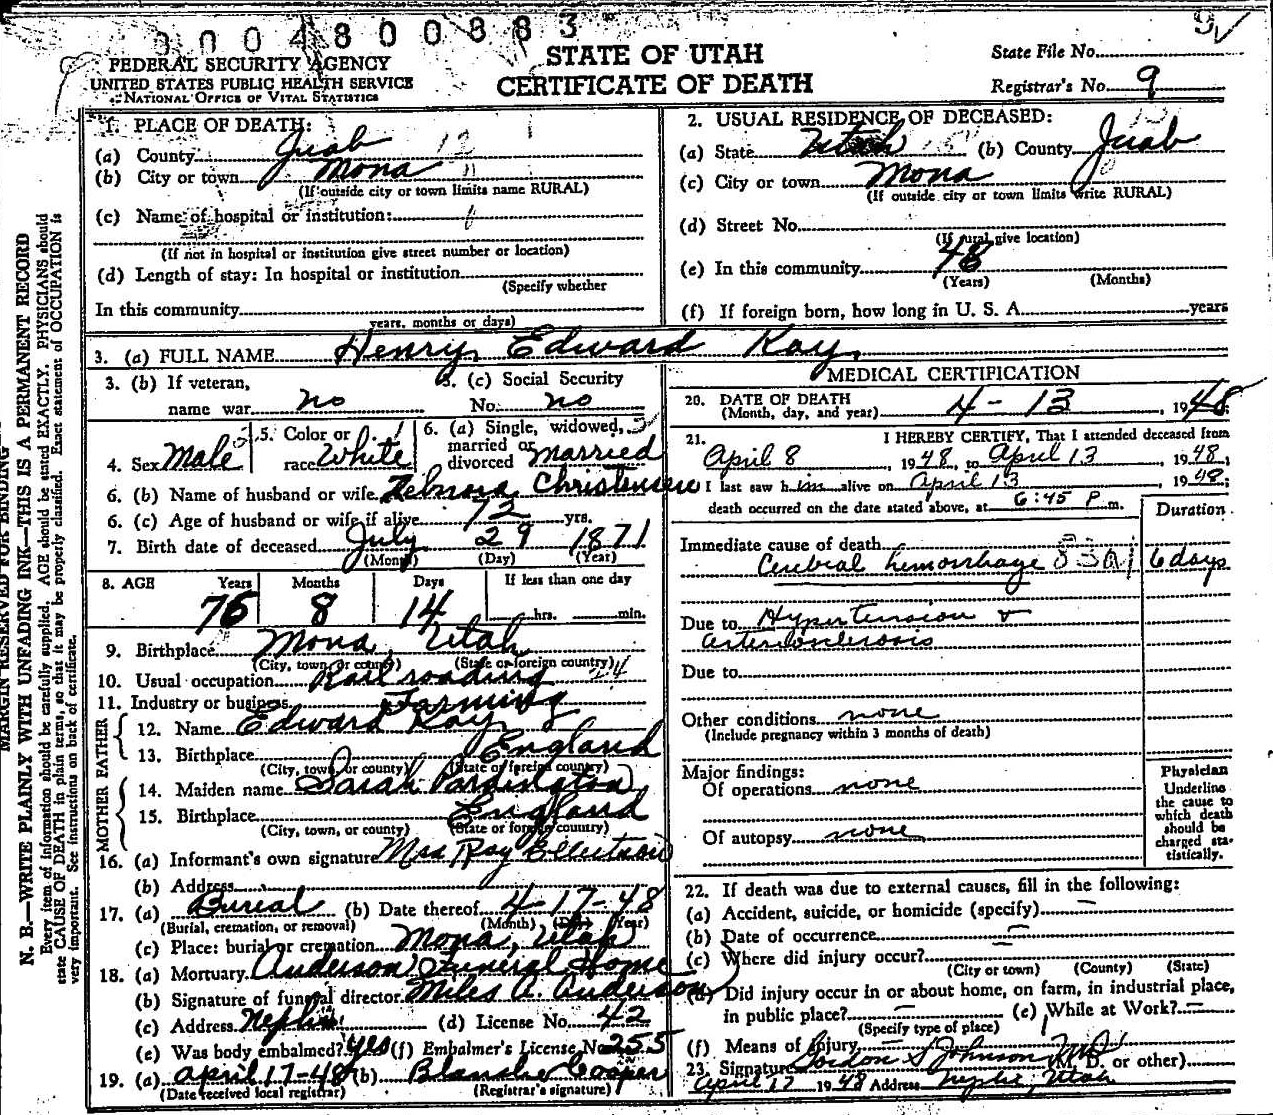 0004800883
9
FEDERAL SECURITY AGENCY
UNITED STATES PUBLIC HEALTH SERVICE
NATIONAL OFFICE OF VITAL STATISTICS
STATE OF UTAH
CERTIFICATE OF DEATH
State File No.
Registrar's No. 9
MARGIN RESERVED FOR BINDING
N. B.—WRITE PLAINLY WITH UNFADING INK—THIS IS A PERMANENT RECORD
Every item of information should be carefully supplied. AGE should be stated EXACTLY. PHYSICIANS should
state CAUSE OF DEATH in plain terms, so that it may be properly classified. Exact statement of OCCUPATION is
very important. See instructions on back of certificate.
1. PLACE OF DEATH:
(a) County Juab 12
(b) City or town Mona 11
(If outside city or town limits name RURAL)
(c) Name of hospital or institution:
(If not in hospital or institution give street number or location)
(d) Length of stay: In hospital or institution
(Specify whether
In this community
years, months or days)
2. USUAL RESIDENCE OF DECEASED:
(a) State Utah (b) County Juab
(c) City or town Mona
(If outside city or town limits write RURAL)
(d) Street No.
(If rural give location)
(e) In this community 48
(Years) (Months)
(f) If foreign born, how long in U. S. A. years
3. (a) FULL NAME Henry Edward Kay
3. (b) If veteran, name war no
3. (c) Social Security No. no
4. Sex Male
5. Color or race White
6. (a) Single, widowed, married or divorced Married
6. (b) Name of husband or wife Christensen
6. (c) Age of husband or wife if alive 72 yrs.
7. Birth date of deceased July 29 1871
(Month) (Day) (Year)
8. AGE Years Months Days If less than one day
76 8 14 hrs. min.
9. Birthplace Mona, Utah
(City, town, or county) (State or foreign country)
10. Usual occupation Rail roading
11. Industry or business Farming
FATHER
12. Name Edward Kay
13. Birthplace England
(City, town, or county) (State or foreign country)
MOTHER
14. Maiden name Sarah Pardington
15. Birthplace England
(City, town, or county) (State or foreign country)
16. (a) Informant's own signature Mrs Ray
(b) Address
17. (a) Burial (b) Date thereof 4-17-48
(Burial, cremation, or removal) (Month) (Day) (Year)
(c) Place: burial or cremation Mona, Utah
18. (a) Mortuary Anderson Funeral Home
(b) Signature of funeral director Miles A. Anderson
(c) Address Nephi (d) License No. 42
(e) Was body embalmed? yes (f) Embalmer's License No. 255
19. (a) April 17-48 (b) Blanche Cooper
(Date received local registrar) (Registrar's signature)
MEDICAL CERTIFICATION
20. DATE OF DEATH
(Month, day, and year) 4-13, 1948;
21. I HEREBY CERTIFY, That I attended deceased from
April 8, 1948, to April 13, 1948,
I last saw him alive on April 13 1948;
death occurred on the date stated above, at 6:45 P. m.
Duration
Immediate cause of death
Cerebral hemorrhage 83a1 6 days
Due to Hypertension &
arteriosclerosis
Due to
Other conditions none
(Include pregnancy within 3 months of death)
Major findings:
Of operations none
Of autopsy none
Physician
Underline
the cause to
which death
should be
charged sta-
tistically.
22. If death was due to external causes, fill in the following:
(a) Accident, suicide, or homicide (specify) —
(b) Date of occurrence —
(c) Where did injury occur? —
(City or town) (County) (State)
(d) Did injury occur in or about home, on farm, in industrial place,
in public place? — (e) While at Work? —
(Specify type of place)
(f) Means of Injury —
23. Signature Gordon S Johnson MD (M. D. or other)
April 17 1948 Address Nephi, Utah